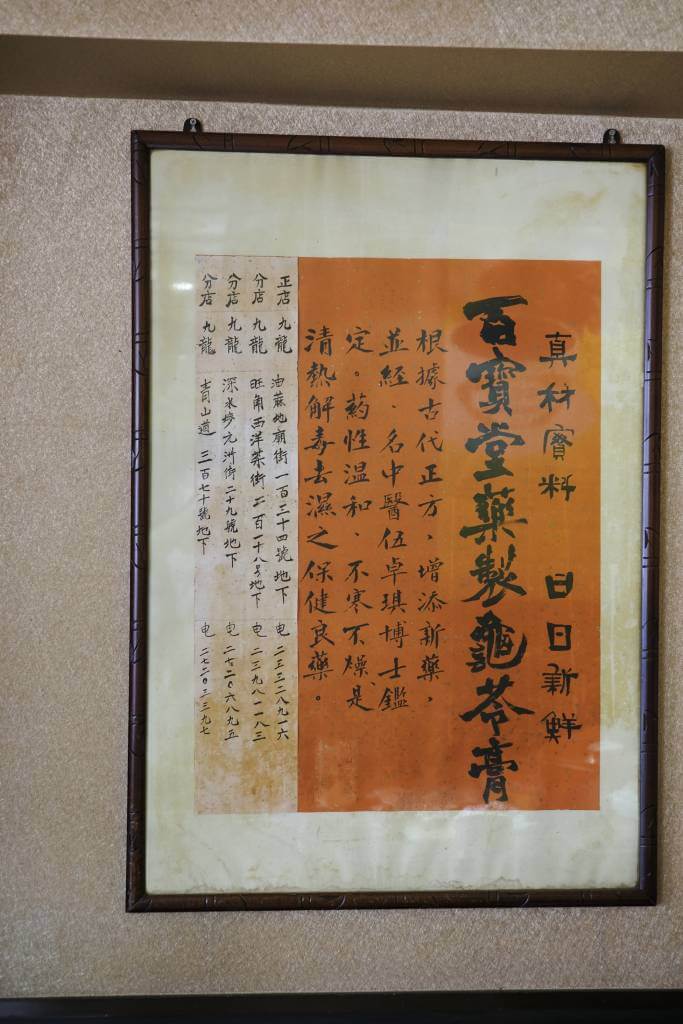 真材實料 日日新鮮
百寶堂藥製龜苓膏
根據古代正方，增添新藥，
並經．名中醫伍卓琪博士鑑
定。葯性溫和．不寒不燥是
清熱解毒去濕之保健良藥。
正店 九龍 油蔴地廟街一百三十四號地下 电 二三三二八九一六
分店 九龍 旺角西洋菜街二百一十八号地下 电 二三九八一一八三
分店 九龍 深水埗元洲街二十九號地下 电 二七二〇六八九五
分店 九龍 山道三百七十號地下 电 二七二〇三三九七